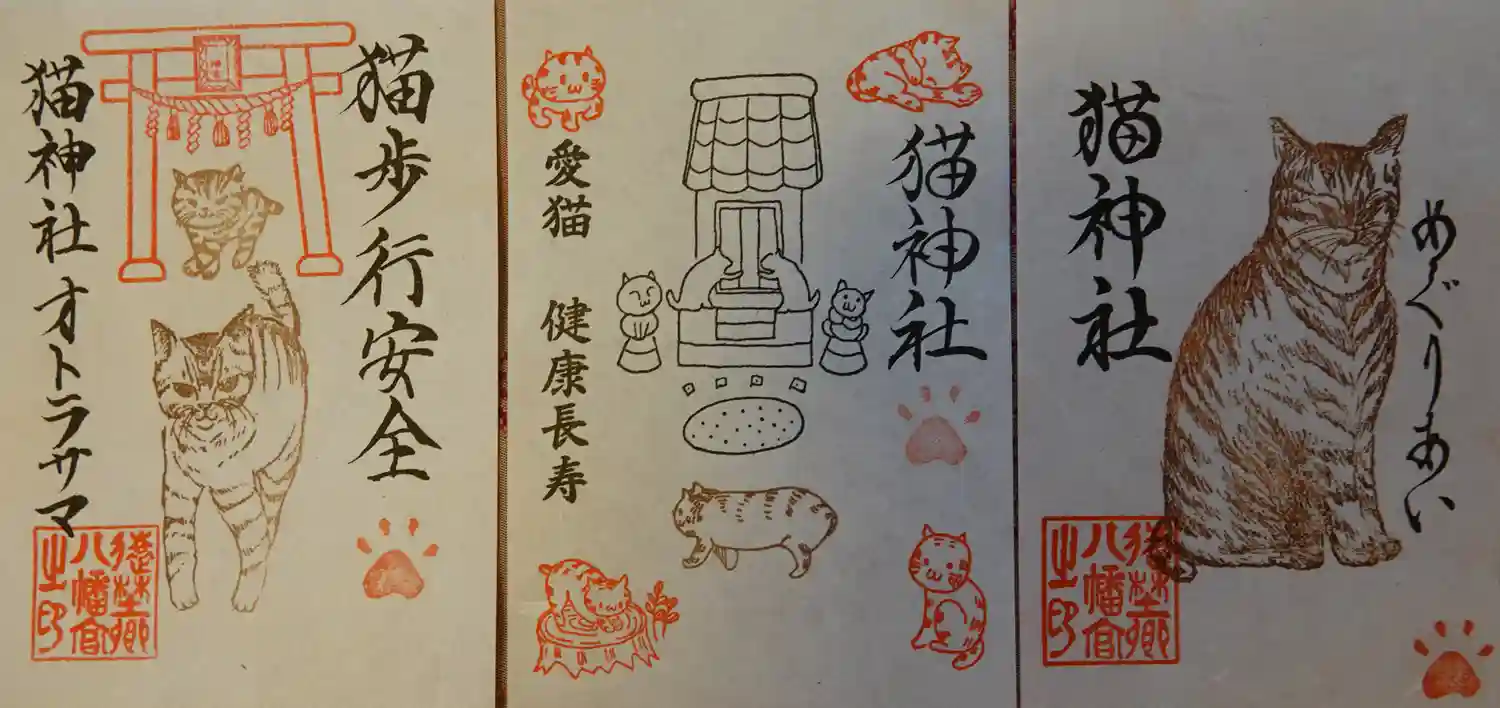 猫歩行安全
猫神社 オトラサマ
八幡宮
之印
猫神社
愛猫 健康長寿
めぐりあい
猫神社
八幡宮
之印